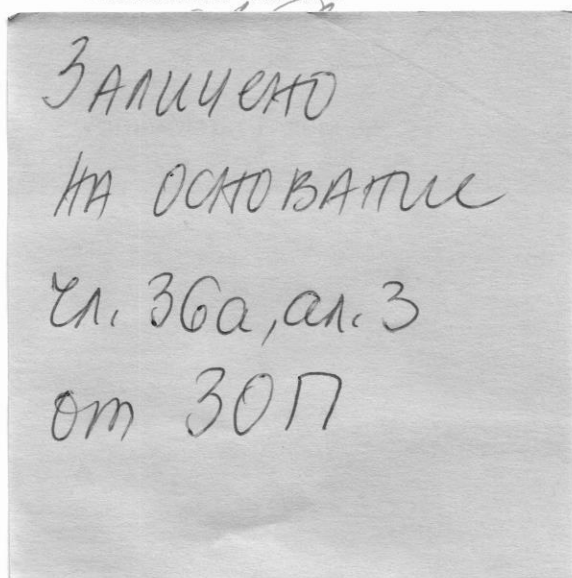 Заличено
на основание
чл. 36а, ал. 3
от ЗОП